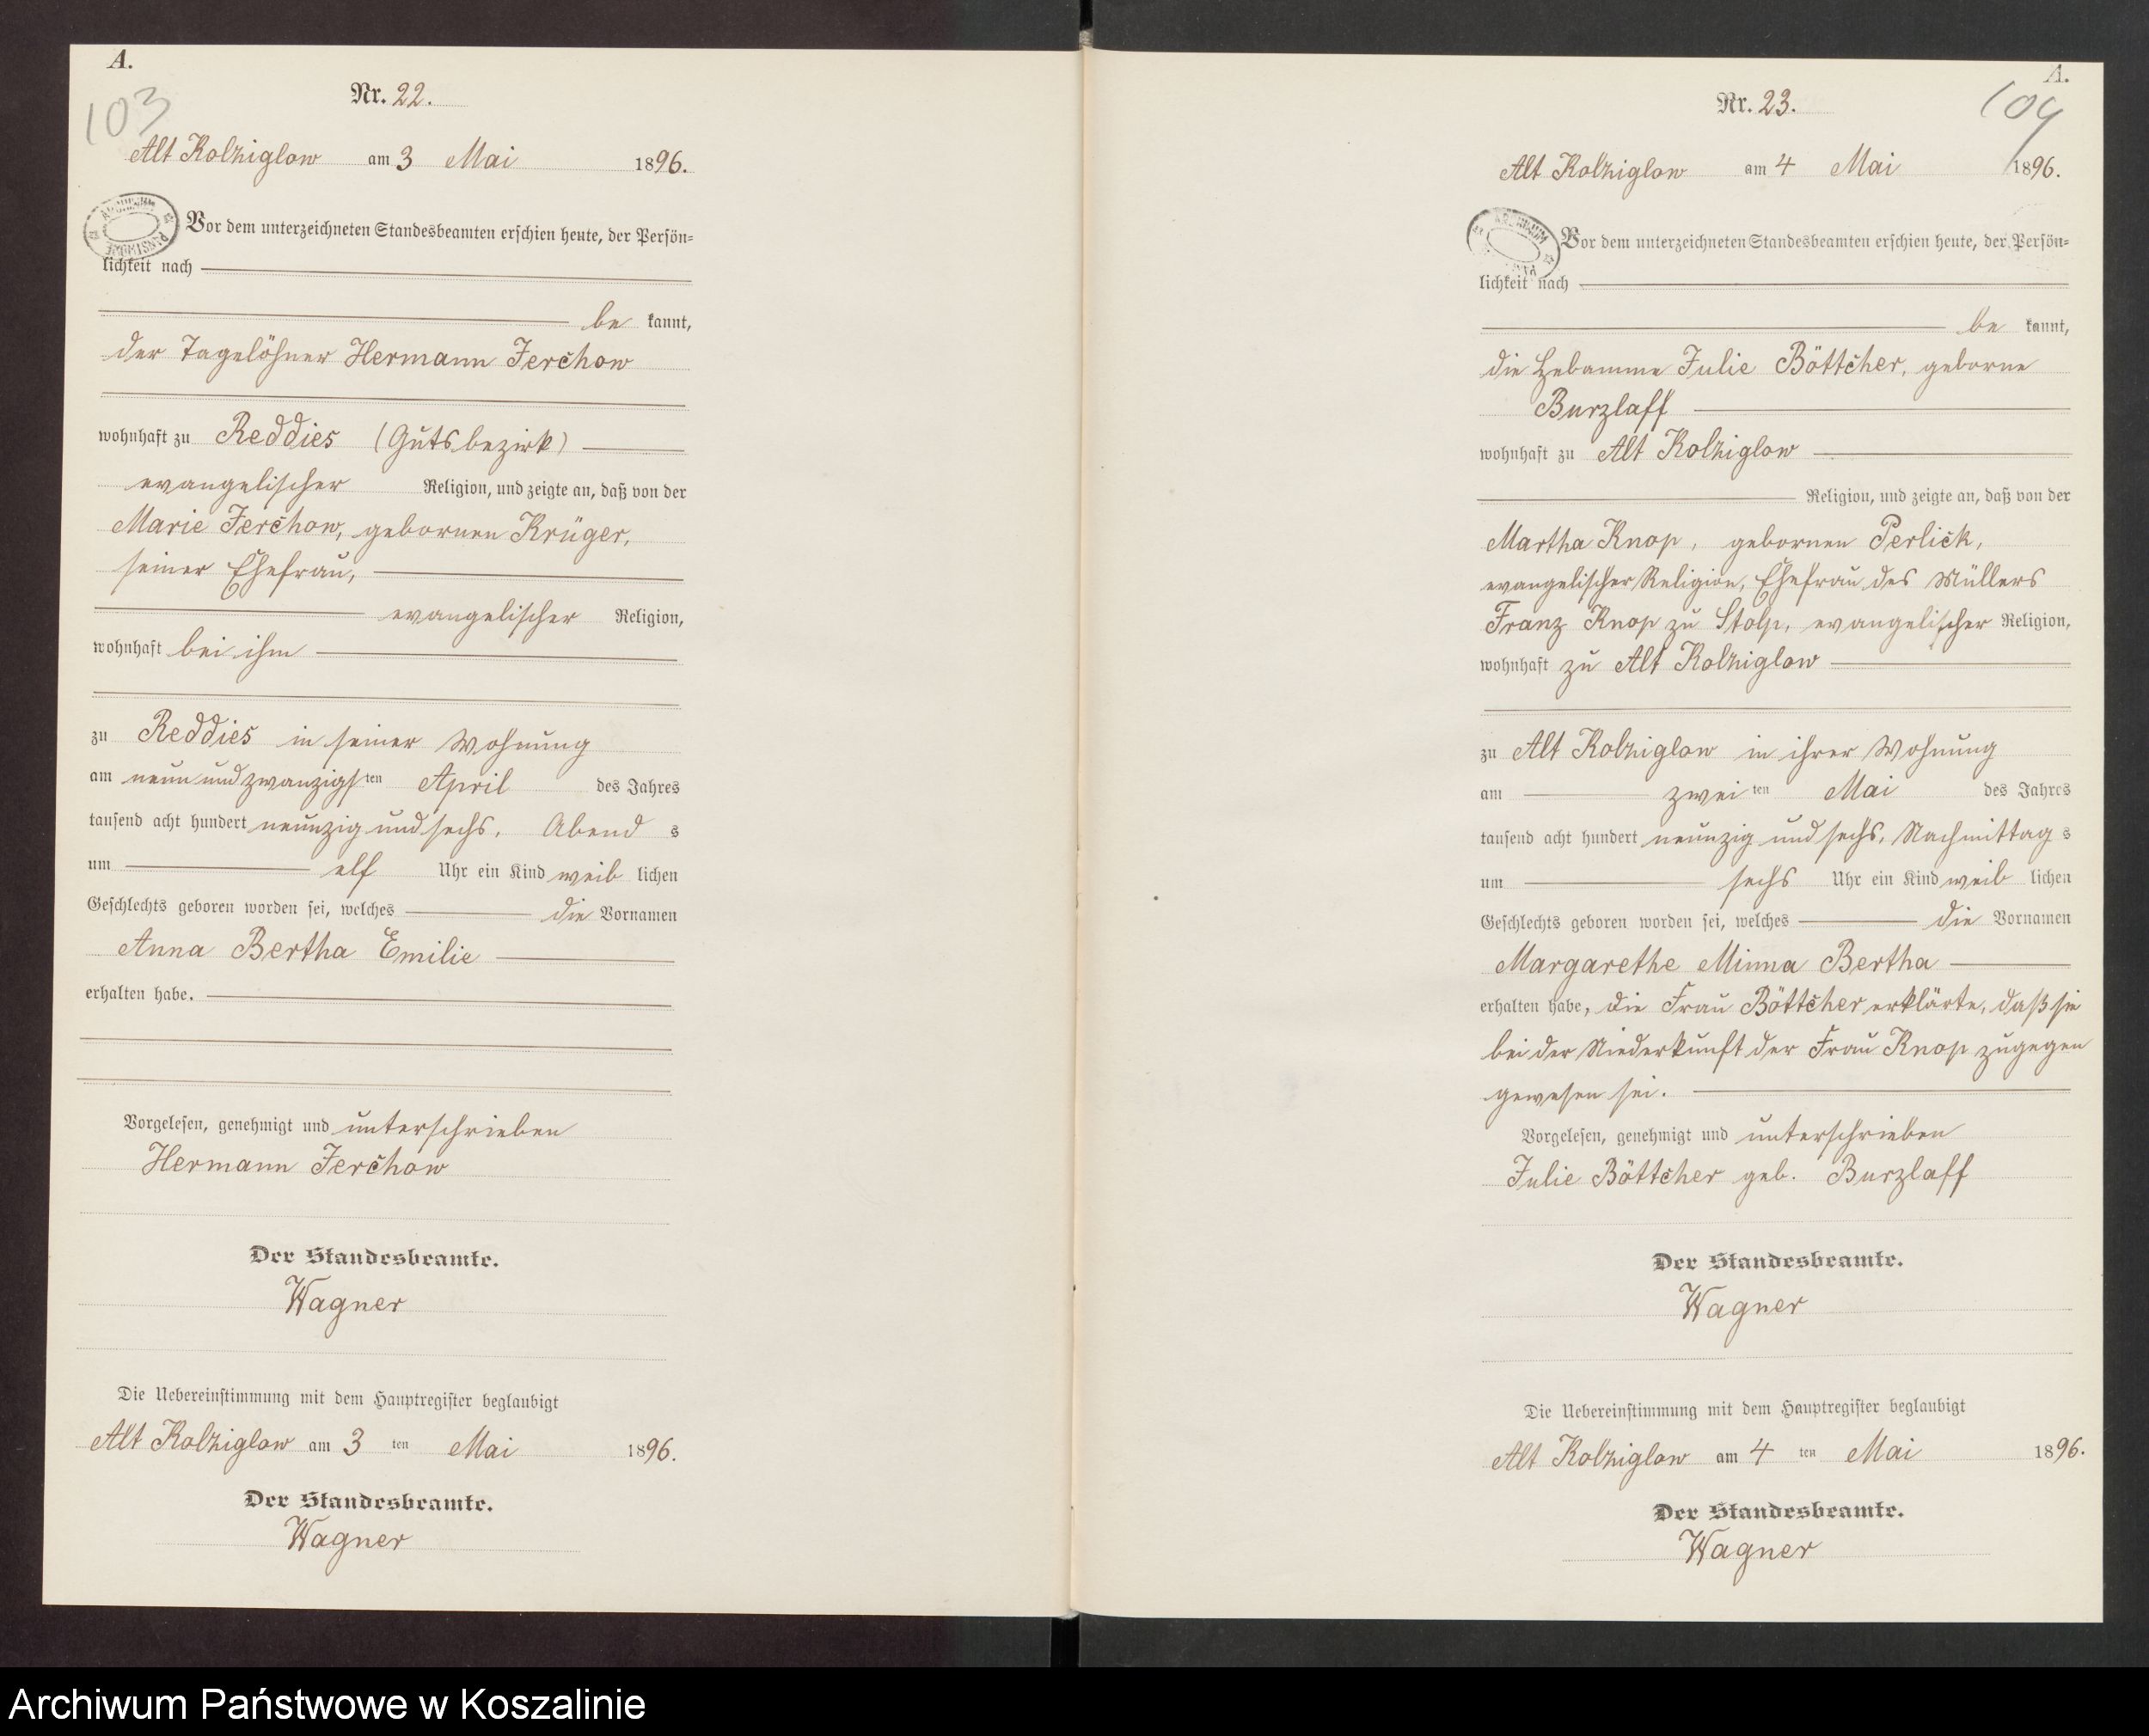 A.
103
Nr. 22.
Alt Kolziglow am 3 Mai 1896.
Vor dem unterzeichneten Standesbeamten erschien heute, der Persön-
lichkeit nach
be kannt,
der Tagelöhner Hermann Jerchow
wohnhaft zu Reddies (Gutsbezirk)
evangelischer Religion, und zeigte an, daß von der
Marie Jerchow, gebornen Krüger,
seiner Ehefrau,
evangelischer Religion,
wohnhaft bei ihm
zu Reddies in seiner Wohnung
am neun und zwanzigsten April des Jahres
tausend acht hundert neunzig und sechs, Abend s
um elf Uhr ein Kind weib lichen
Geschlechts geboren worden sei, welches die Vornamen
Anna Bertha Emilie
erhalten habe.
Vorgelesen, genehmigt und unterschrieben
Hermann Jerchow
Der Standesbeamte.
Wagner
Die Uebereinstimmung mit dem Hauptregister beglaubigt
Alt Kolziglow am 3 ten Mai 1896.
Der Standesbeamte.
Wagner
A.
104
Nr. 23.
Alt Kolziglow am 4 Mai 1896.
Vor dem unterzeichneten Standesbeamten erschien heute, der Persön-
lichkeit nach
be kannt,
die Hebamme Julie Böttcher, geborne
Burzlaff
wohnhaft zu Alt Kolziglow
Religion, und zeigte an, daß von der
Martha Knop, gebornen Perlick,
evangelischer Religion, Ehefrau des Müllers
Franz Knop zu Stolp, evangelischer Religion,
wohnhaft zu Alt Kolziglow
zu Alt Kolziglow in ihrer Wohnung
am zwei ten Mai des Jahres
tausend acht hundert neunzig und sechs, Nachmittag s
um sechs Uhr ein Kind weib lichen
Geschlechts geboren worden sei, welches die Vornamen
Margarethe Minna Bertha
erhalten habe, die Frau Böttcher erklärte, daß sie
bei der Niederkunft der Frau Knop zugegen
gewesen sei.
Vorgelesen, genehmigt und unterschrieben
Julie Böttcher geb. Burzlaff
Der Standesbeamte.
Wagner
Die Uebereinstimmung mit dem Hauptregister beglaubigt
Alt Kolziglow am 4 ten Mai 1896.
Der Standesbeamte.
Wagner
Archiwum Państwowe w Koszalinie